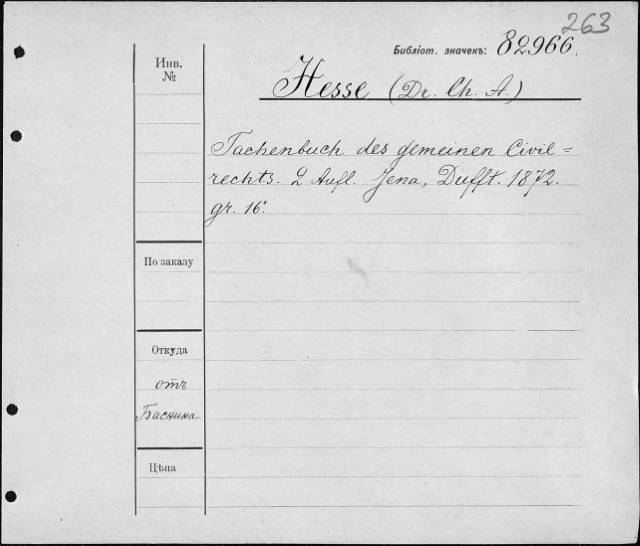 263
Библіот. значекъ: 82966.
Инв.
№
Hesse (Dr. Ch. A.)
Tachenbuch des gemeinen Civil=
rechts. 2 Aufl. Jena, Dufft. 1872.
gr. 16°.
По заказу
Откуда
отъ
Баснина
Цѣна